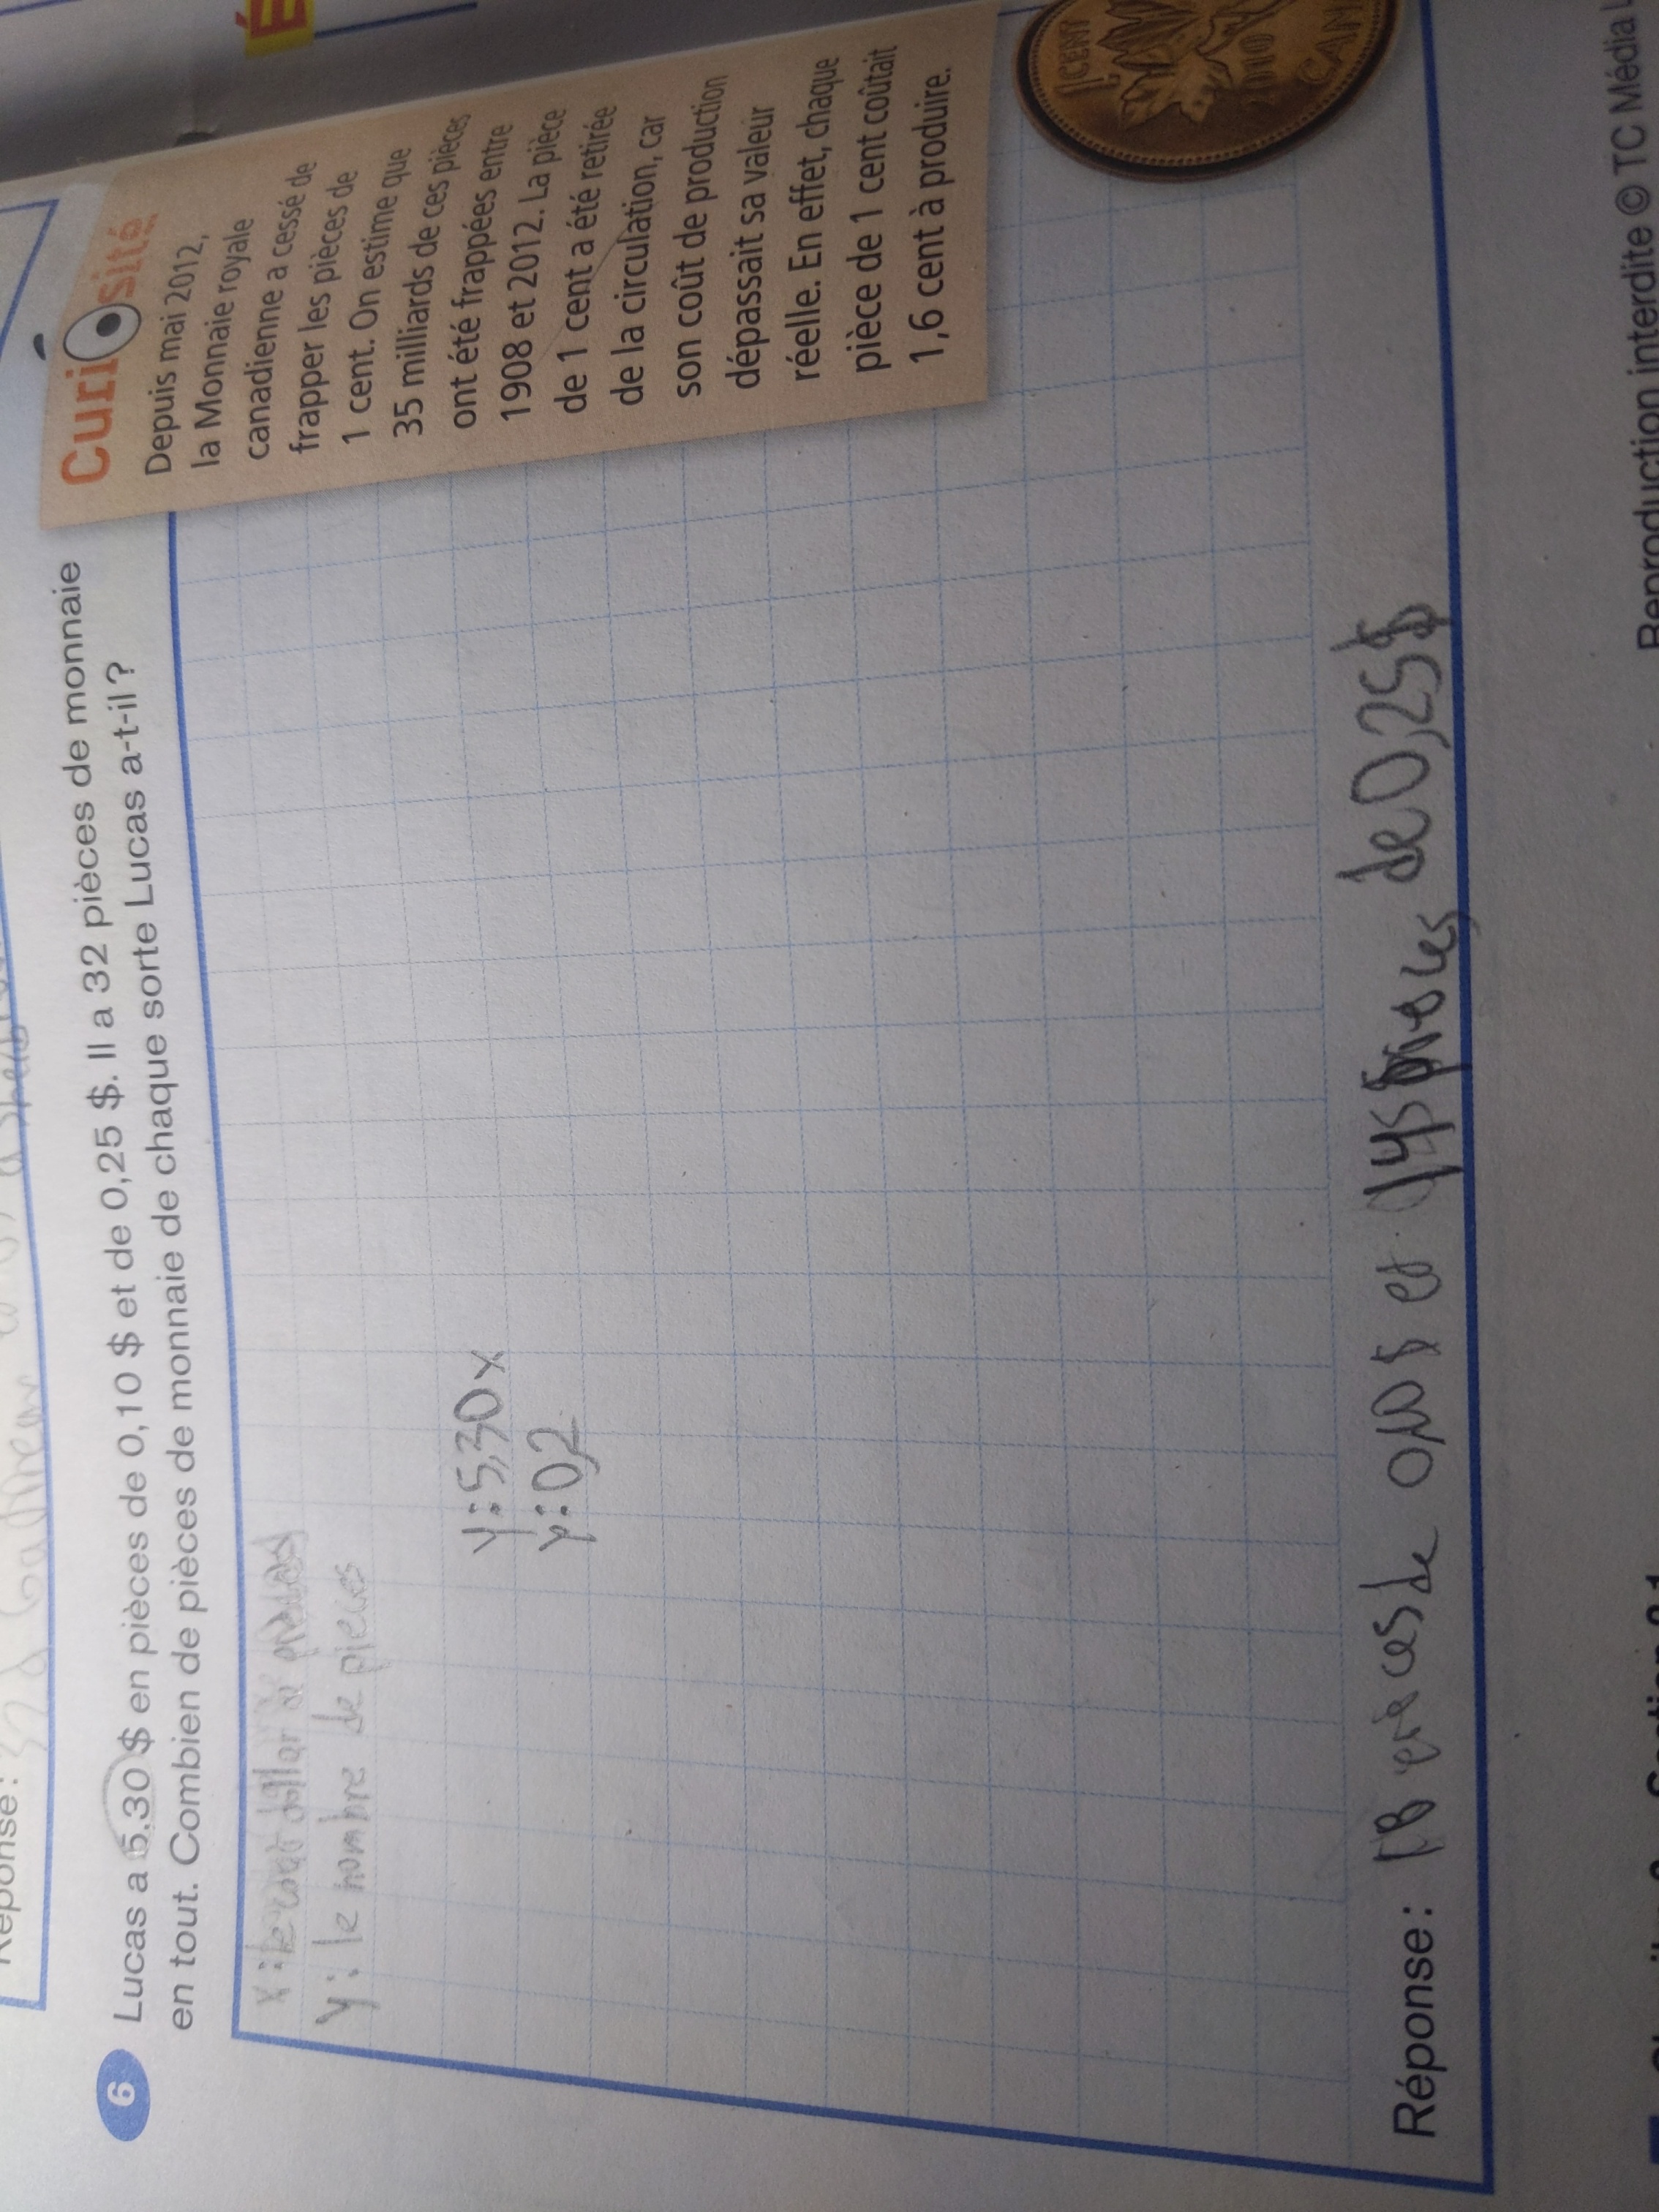 Réponse:
6 Lucas a 5,30 $ en pièces de 0,10 $ et de 0,25 $. Il a 32 pièces de monnaie
en tout. Combien de pièces de monnaie de chaque sorte Lucas a-t-il ?
x : le dollar de
y : le nombre de pieces
y : 5,30x
y : 0,2
Réponse : 18 de 0,10 $ et 14 de 0,25$
Curiosité
Depuis mai 2012,
la Monnaie royale
canadienne a cessé de
frapper les pièces de
1 cent. On estime que
35 milliards de ces pièces
ont été frappées entre
1908 et 2012. La pièce
de 1 cent a été retirée
de la circulation, car
son coût de production
dépassait sa valeur
réelle. En effet, chaque
pièce de 1 cent coûtait
1,6 cent à produire.
1 CENT
2010
CANA
É
Reproduction interdite © TC Média